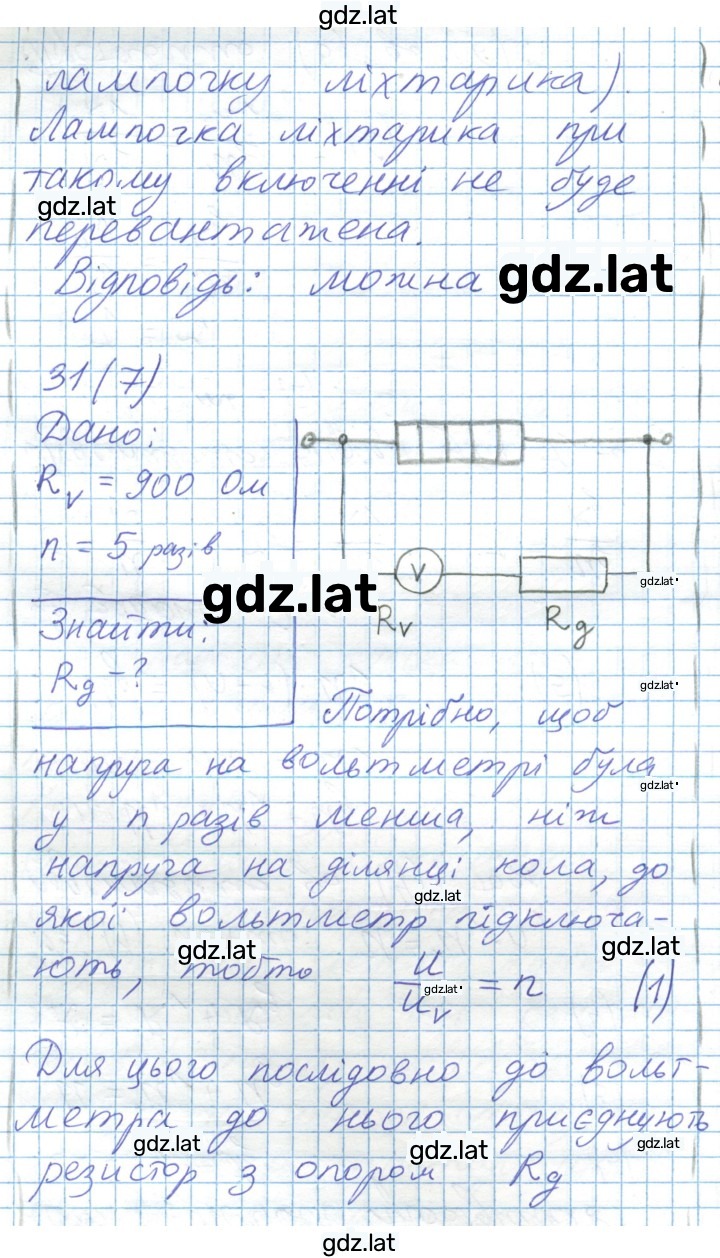 gdz.lat
лампочку ліхтарика).
Лампочка ліхтарика при
такому включенні не буде
gdz.lat
перевантажена.
Відповідь: можна gdz.lat
31(7)
Дано:
R_V = 900 Ом
n = 5 разів
V gdz.lat
gdz.lat
Знайти: R_V R_g
R_g - ?
gdz.lat
Потрібно, щоб
напруга на вольтметрі була
gdz.lat
у n разів менша, ніж
напруга на ділянці кола, до
gdz.lat
якої вольтметр підключа-
gdz.lat gdz.lat
ють, тобто U/U_V = n (1)
gdz.lat
Для цього послідовно до вольт-
метра до нього приєднують
gdz.lat gdz.lat gdz.lat
резистор з опором R_g
gdz.lat